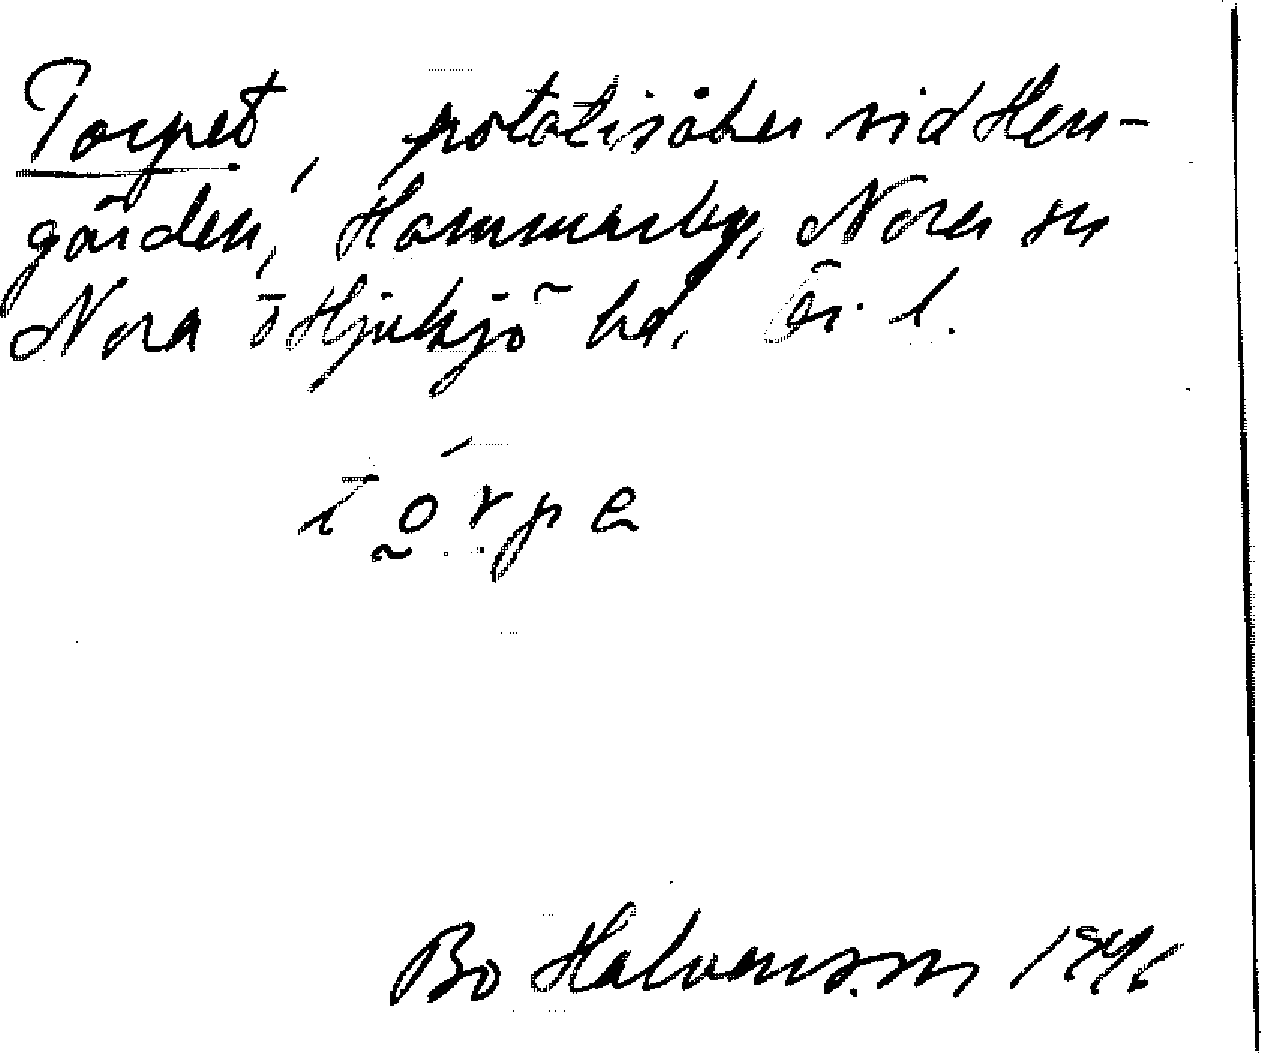 Torpet, potatisåker vid Herr-
gården, Hammarby, Nora sn
Nora o Hjulsjö hd. Ör. l.
tórpe
Bo Halvarsson 1946